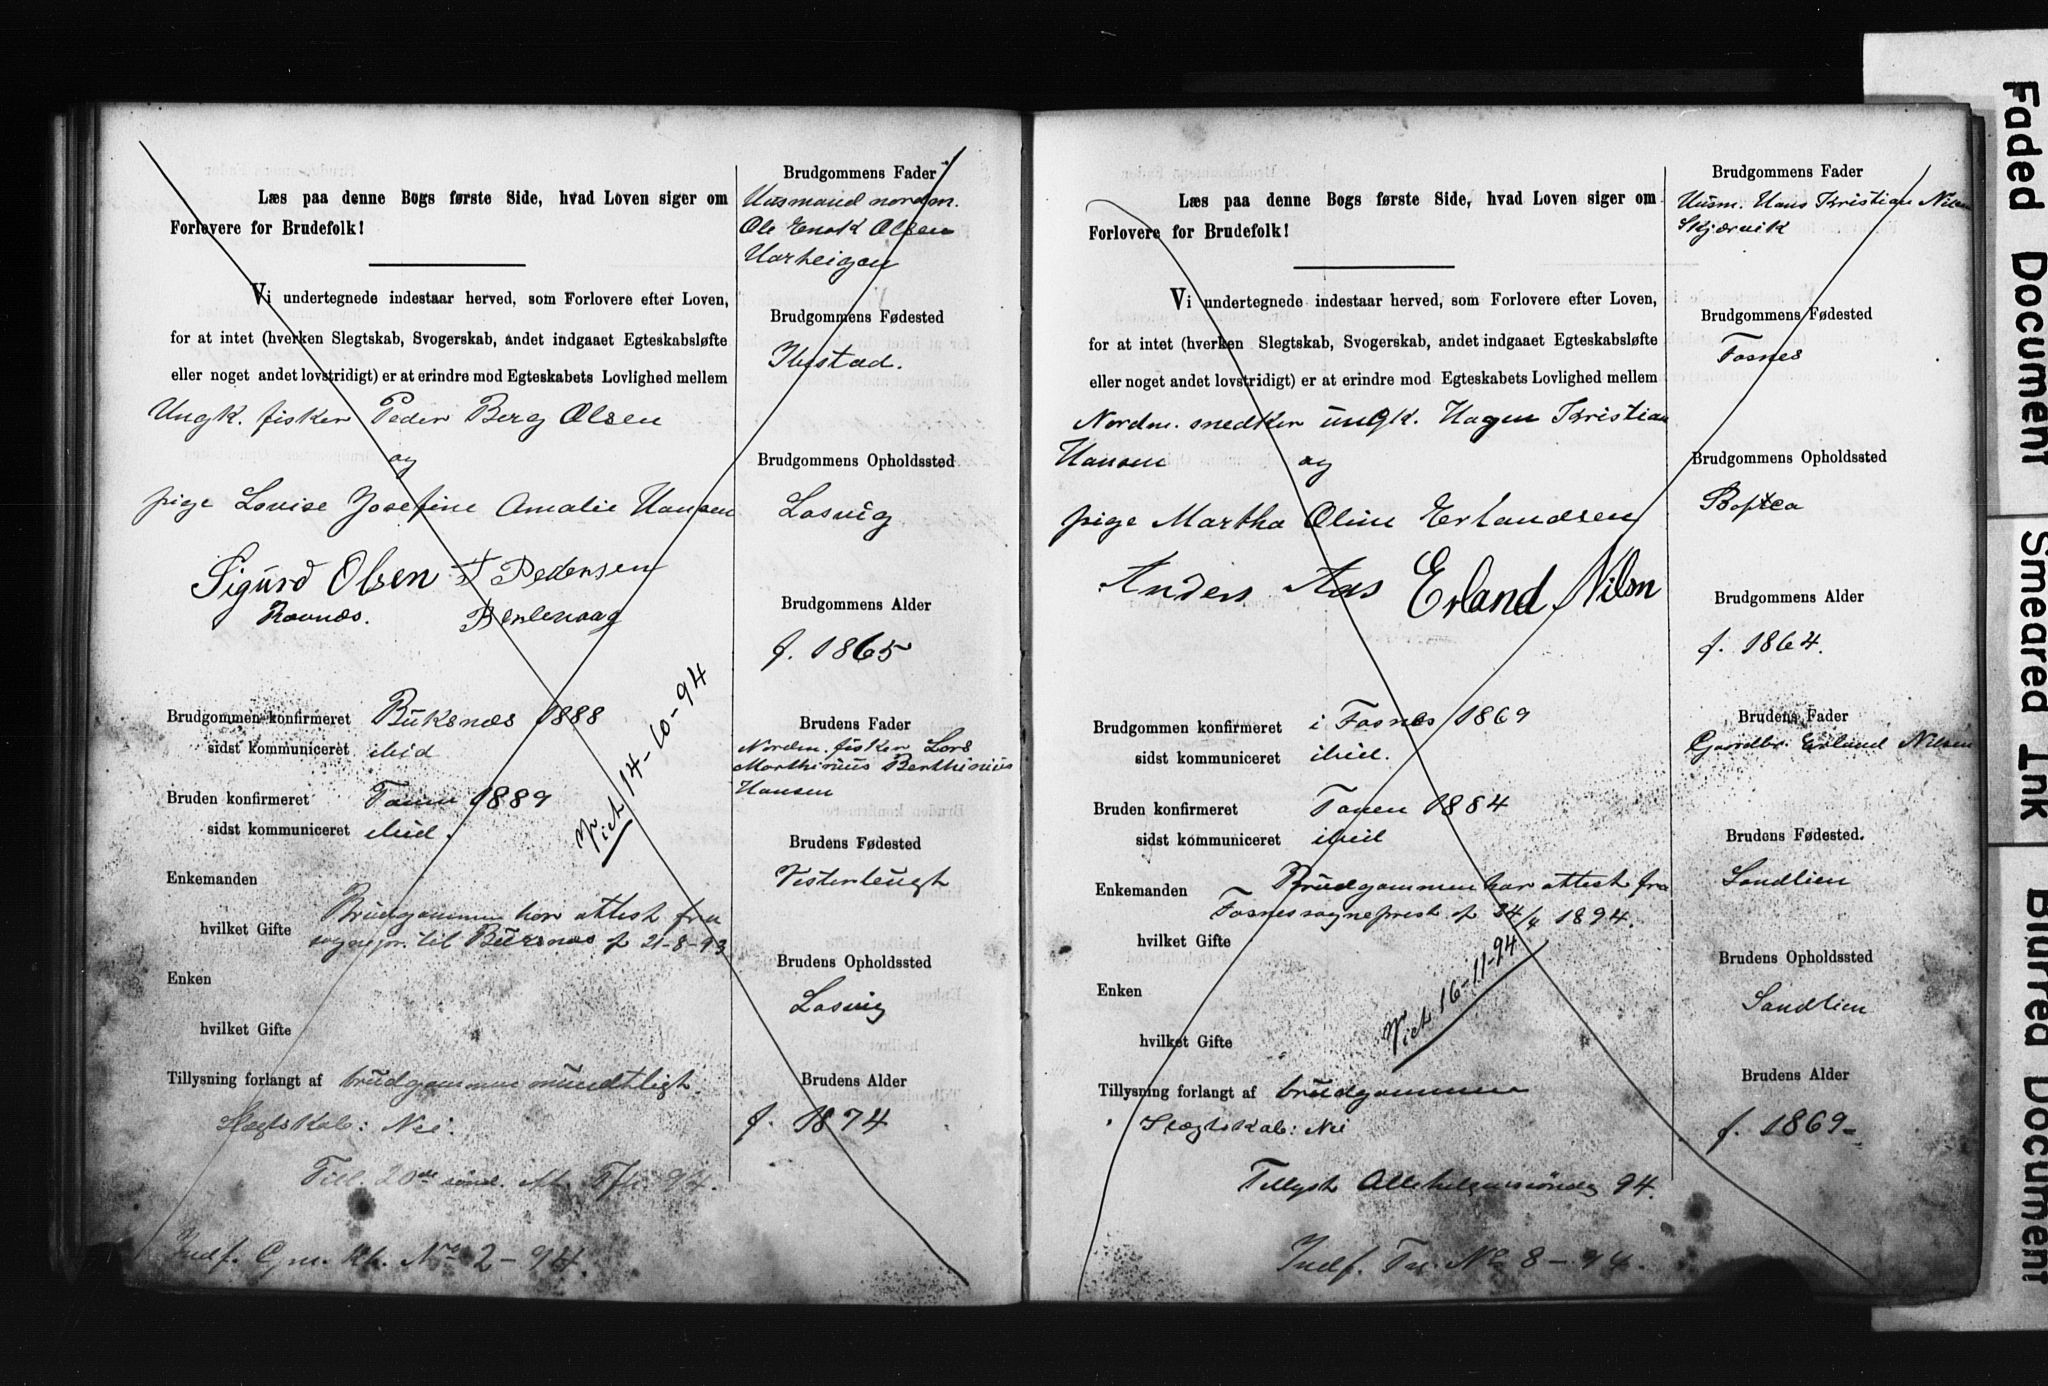 Læs paa denne Bogs første Side, hvad Loven siger om
Forlovere for Brudefolk!
Vi undertegnede indestaar herved, som Forlovere efter Loven,
for at intet (hverken Slegtskab, Svogerskab, andet indgaaet Egteskabsløfte
eller noget andet lovstridigt) er at erindre mod Egteskabets Lovlighed mellem
Ungk. fisker Peder Berg Olsen
og
pige Lovise Josefine Amalie Hansen
Sigurd Olsen Pedersen
Ravnæs. Berlevaag
Brudgommen konfirmeret Buksnæs 1888
sidst kommuniceret ibid
Bruden konfirmeret Tanen 1889
sidst kommuniceret ibid.
Viet 14-10-94
Enkemanden
Brudgommen har attest fra
hvilket Gifte
sognepr. til Buksnæs af 21-8-93
Enken
hvilket Gifte
Tillysning forlangt af brudgommen mundtligt.
Slægtskab: Nei.
Till. 20de sønd. 94.
Indf. Gm. kb. No 2-94.
Brudgommens Fader
Husmand nordm.
Ole Enok Olsen
Brudgommens Fødested
Ibestad.
Brudgommens Opholdssted
Losvig
Brudgommens Alder
f. 1865
Brudens Fader
Nordm. fisker Lars
Marthinius Berthinius
Hansen
Brudens Fødested
Vesterbugt
Brudens Opholdssted
Losvig
Brudens Alder
f. 1874
Læs paa denne Bogs første Side, hvad Loven siger om
Forlovere for Brudefolk!
Vi undertegnede indestaar herved, som Forlovere efter Loven,
for at intet (hverken Slegtskab, Svogerskab, andet indgaaet Egteskabsløfte
eller noget andet lovstridigt) er at erindre mod Egteskabets Lovlighed mellem
Nordm. snedker ungk. Hagen Kristian
Hansen og
pige Martha Oline Erlandsen
Anders Aas Erland Nilsn
Brudgommen konfirmeret i Fosnes 1869
sidst kommuniceret ibid.
Bruden konfirmeret Tanen 1884
sidst kommuniceret ibid
Enkemanden Brudgommen har attest fra
Fosnes sogneprest af 24/4 1894.
hvilket Gifte
Viet 16-11-94
Enken
hvilket Gifte
Tillysning forlangt af brudgommen
Slægtskab: Nei
Tillyst Allehelgensøndag 94.
Indf. Tn. No 8-94.
Brudgommens Fader
Husm. Hans Kristian Nilsen
Skjærvik
Brudgommens Fødested
Fosnes
Brudgommens Opholdssted
Brudgommens Alder
f. 1864.
Brudens Fader
Gaardbr. Erland Nilsen
Brudens Fødested.
Sandlien
Brudens Opholdssted
Sandlien
Brudens Alder
f. 1869
Faded Document
Smeared Ink
Blurred Document